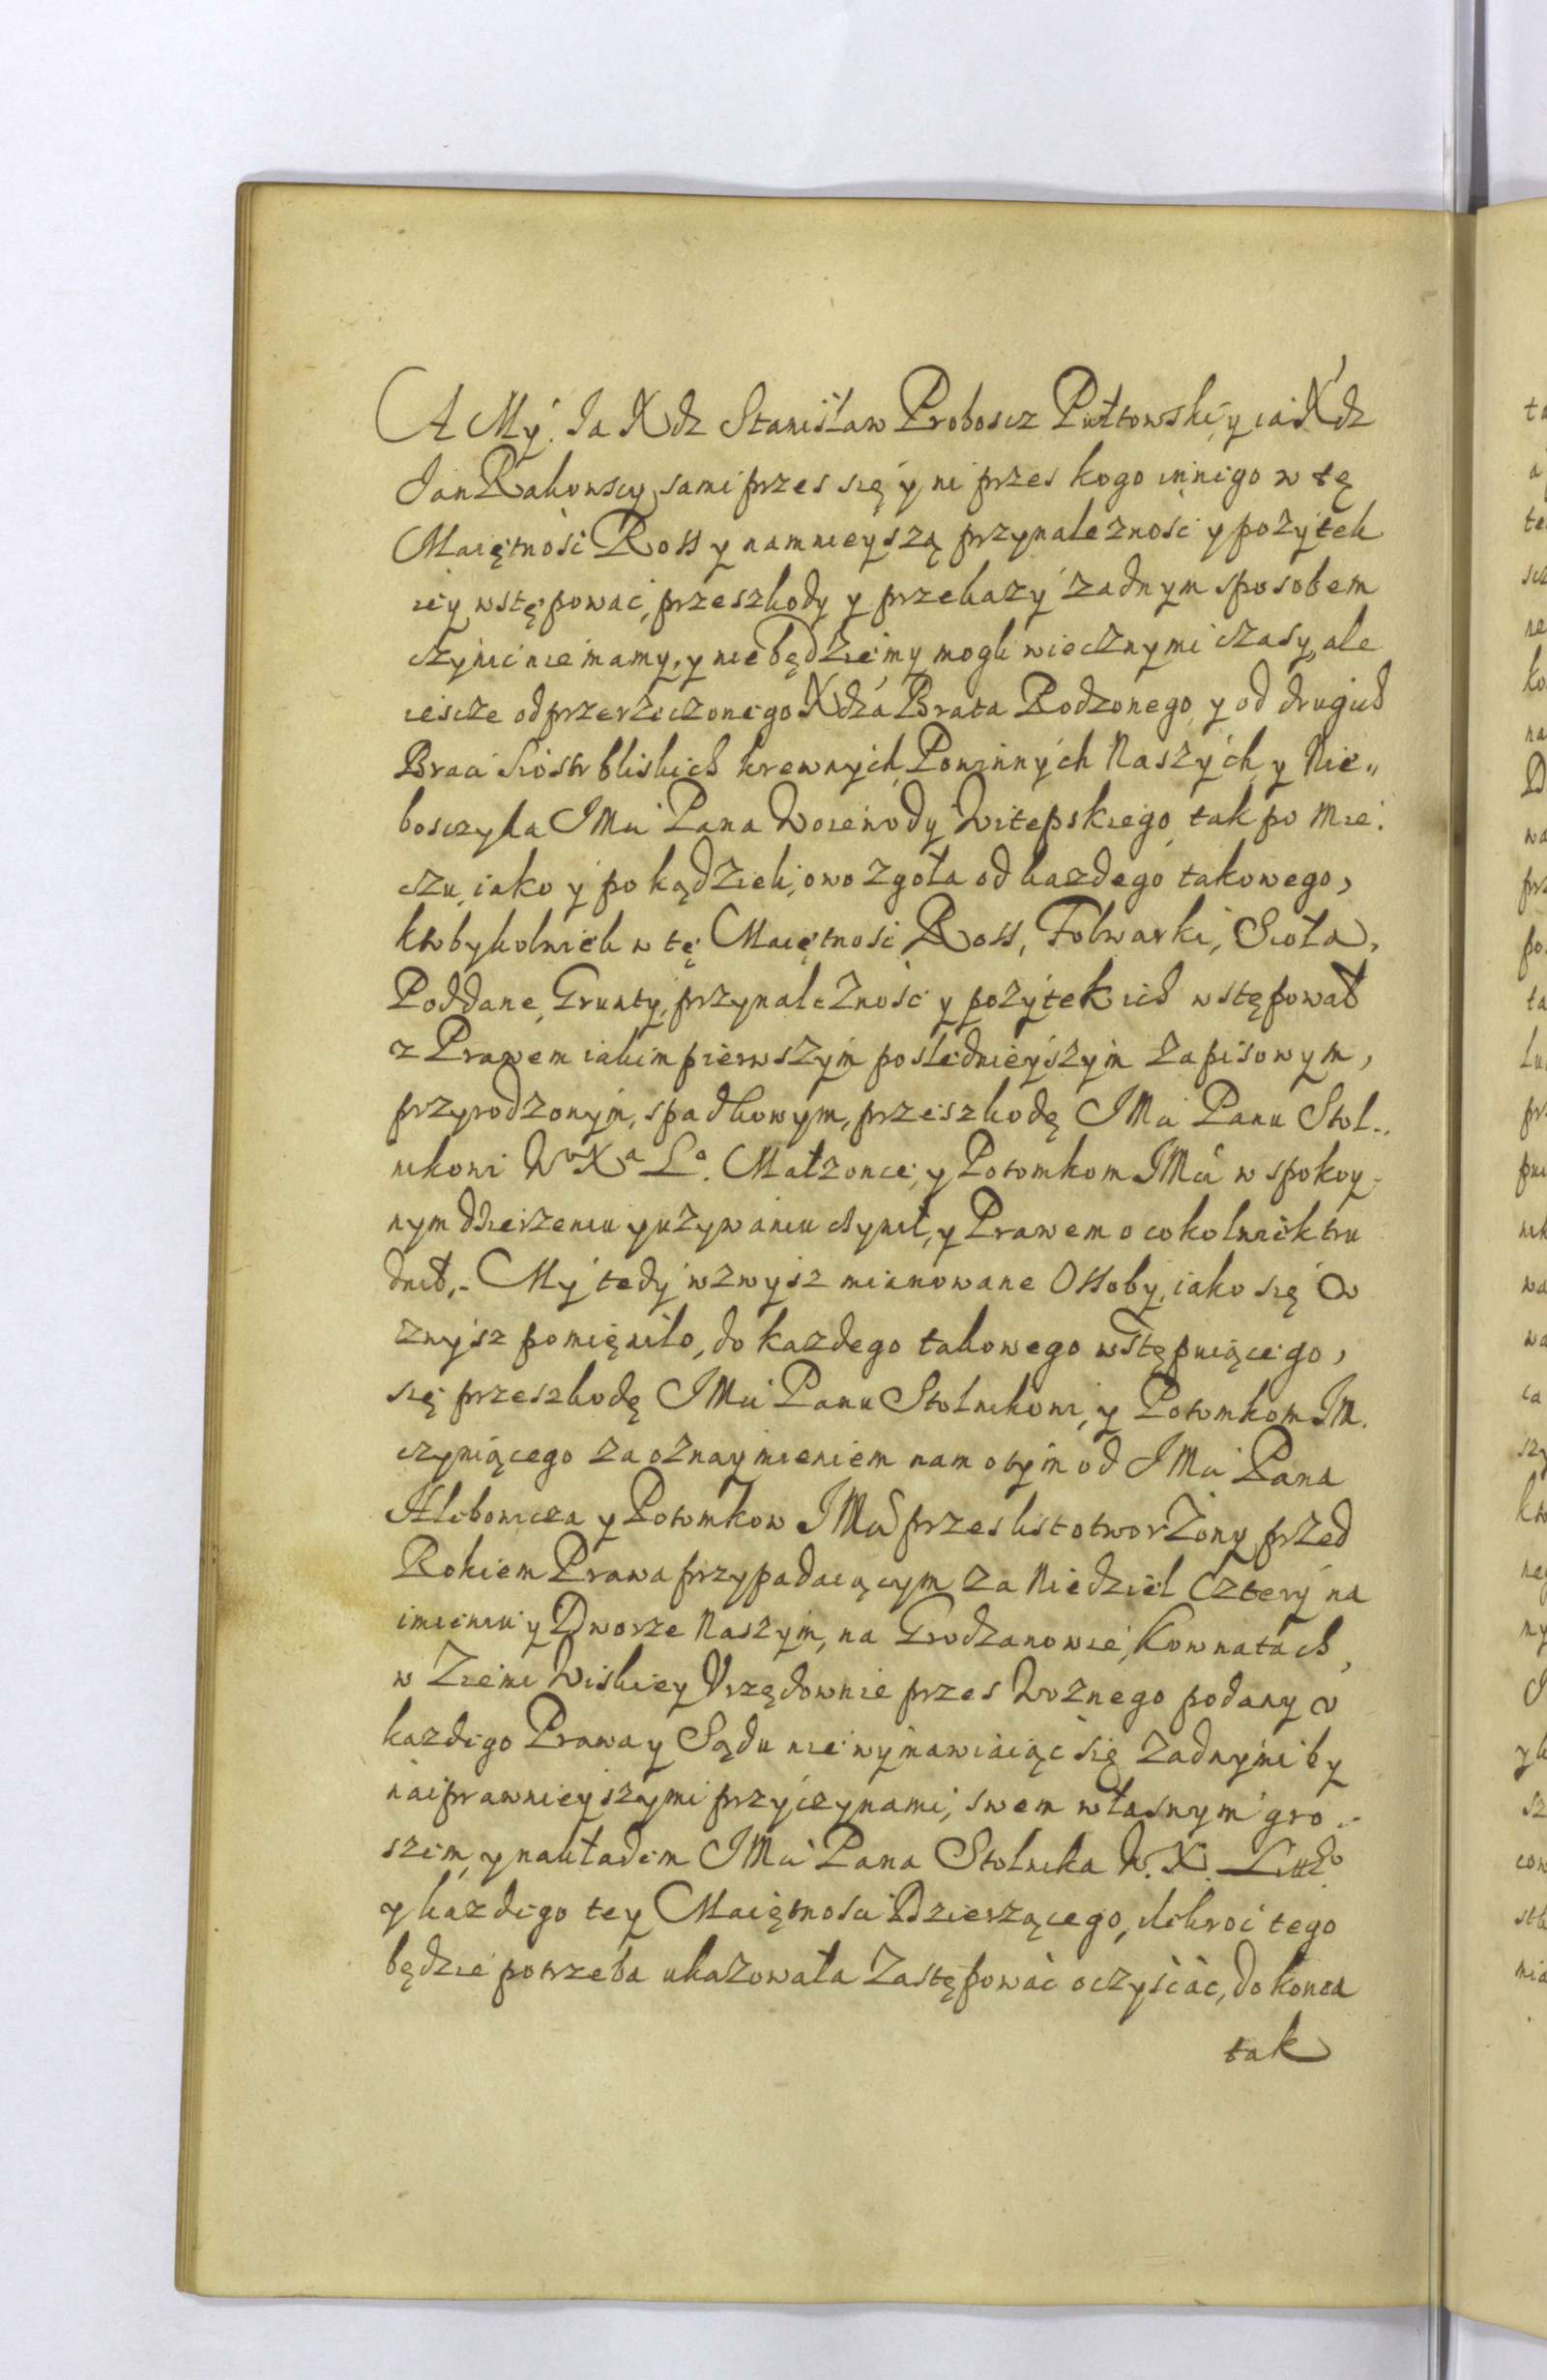 A My. Ja Xdz Stanisław Proboscz Pułtowski, y ia Xdz
Jan Rakowscy, sami przes się y ni przes kogo innego w tę
Maiętność Ross y namnieyszą przynależność y pożytek
iey wstępować, przeszkody y przekazy żadnym sposobem
czynić nie mamy, y nie będziemy mogli wiecznymi czasy, ale
iescze od przerzeczonego Xdza Brata Rodzonego y od drugich
Braci Siostr bliskich krewnych Powinnych Naszych y Nie„
bosczyka JMci Pana Woiewody Witepskiego tak po Mie„
czu, iako y po kądzieli, owo zgoła od każdego takowego,
ktobykolwiek w tę Maiętność Ross, Folwarki, Sioła,
Poddane, Grunty, przynależność y pożytek ich wstępował
z Prawem iakim pierwszym poslednieyszym zapisowym,
przyrodzonym, spadkowym, przeszkodę JMci Panu Stol„
nikowi Wo Xa Lo. Małzonce, y Potomkom JMci w spokoy„
nym dzierzeniu y uzywaniu czynił, y Prawem o cokolwiek tru
dnił,- My tedy wzwysz mianowane Ossoby, iako się w
zwysz pomięniło, do kazdego takowego wstępuiącego,
się przeszkodę JMci Panu Stolnikowi, y Potomkom JM.
czyniącego za oznaymieniem nam o tym od JMci Pana
Hlebowicza y Potomkow JMci przes list otworzony, przed
Rokiem Prawa przypadaiącym za Niedziel Cztery na
imieniu y Dworze Naszym, na Grodzanowie, Kownatach,
w Ziemi Wiskiey Vrzędownie przes Woznego podany v
kazdego Prawa y Sądu nie wymawiaiąc się żadnymi by
naiprawnieyszymi przyczynami, swem własnym gro„
szem, y nakładem JMci Pana Stolnika W. X. Litto
y kazdego tey Maiętności Dzierzącego, ilekroć tego
będzie potrzeba ukazowała zastępować oczyściać, do konca
tak